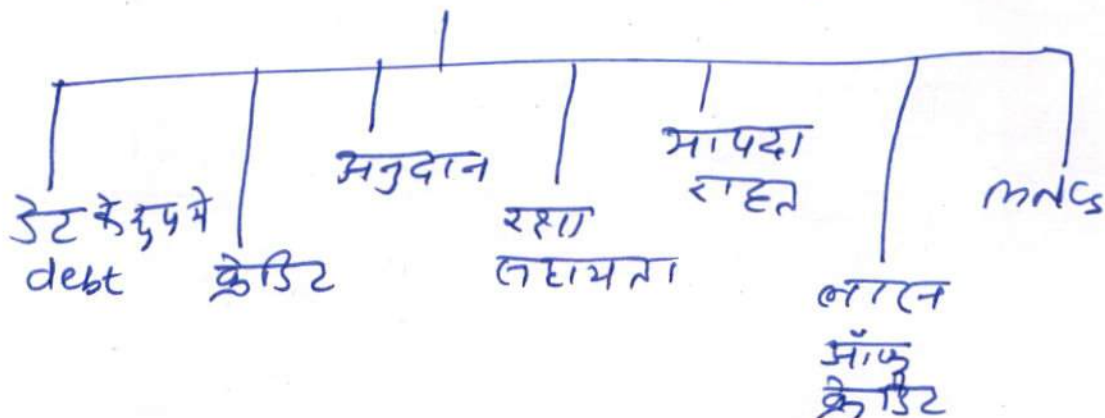 डेट के रूप में
debt
क्रेडिट
अनुदान
रक्षा
सहायता
आपदा
राहत
लाइन
ऑफ
क्रेडिट
MNCs